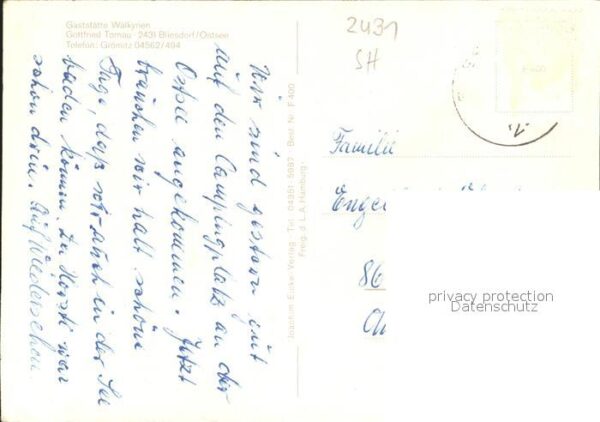 Gaststätte Walkyrien
Gottfried Tornau · 2431 Bliesdorf/Ostsee
Telefon: Grömitz 04562/494
Wir sind gestern gut
auf den Campingplatz an der
Ostsee angekommen. Jetzt
brauchen wir halt schöne
Tage, daß wir auch in der See
baden können. Der Horsti war
schon drin. Auf Wiedersehen.
Joachim Eucke Verlag · Tel. 04351 · 5997 · Best. Nr. F 400
Freig. d. L.A. Hamburg
2431
SH
Familie
Enge
86
privacy protection
Datenschutz